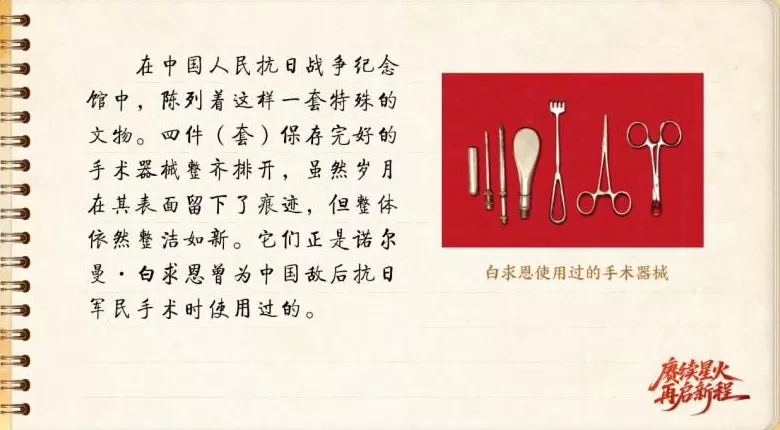 在中国人民抗日战争纪念
馆中，陈列着这样一套特殊的
文物。四件（套）保存完好的
手术器械整齐排开，虽然岁月
在其表面留下了痕迹，但整体
依然整洁如新。它们正是诺尔
曼·白求恩曾为中国敌后抗日
军民手术时使用过的。
白求恩使用过的手术器械
赓续星火
再启新程